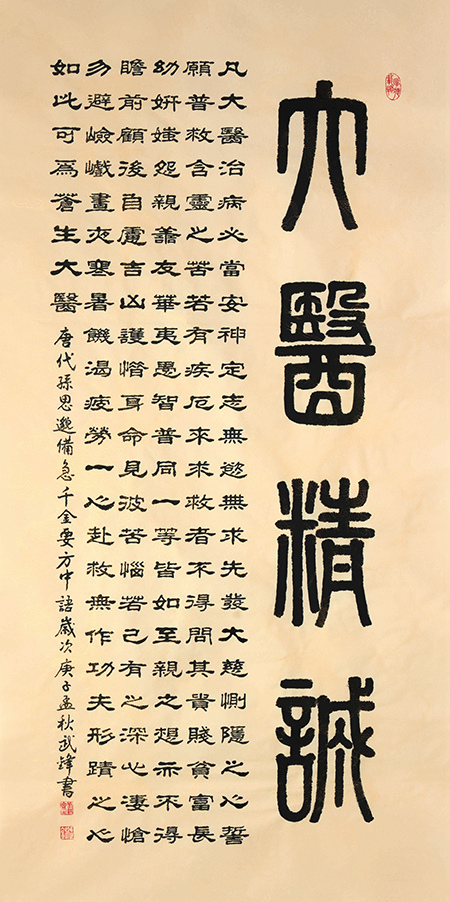 大醫精誠
凡大醫治病必當安神定志無慾無求先發大慈惻隱之心誓
願普救含靈之苦若有疾厄來求救者不得問其貴賤貧富長
幼妍媸怨親善友華夷愚智普同一等皆如至親之想亦不得
瞻前顧後自慮吉凶護惜身命見彼苦惱若己有之深心淒愴
勿避嶮巇晝夜寒暑饑渴疲勞一心赴救無作功夫形蹟之心
如此可爲蒼生大醫 唐代孫思邈備急千金要方中語歲次庚子孟秋武鋒書